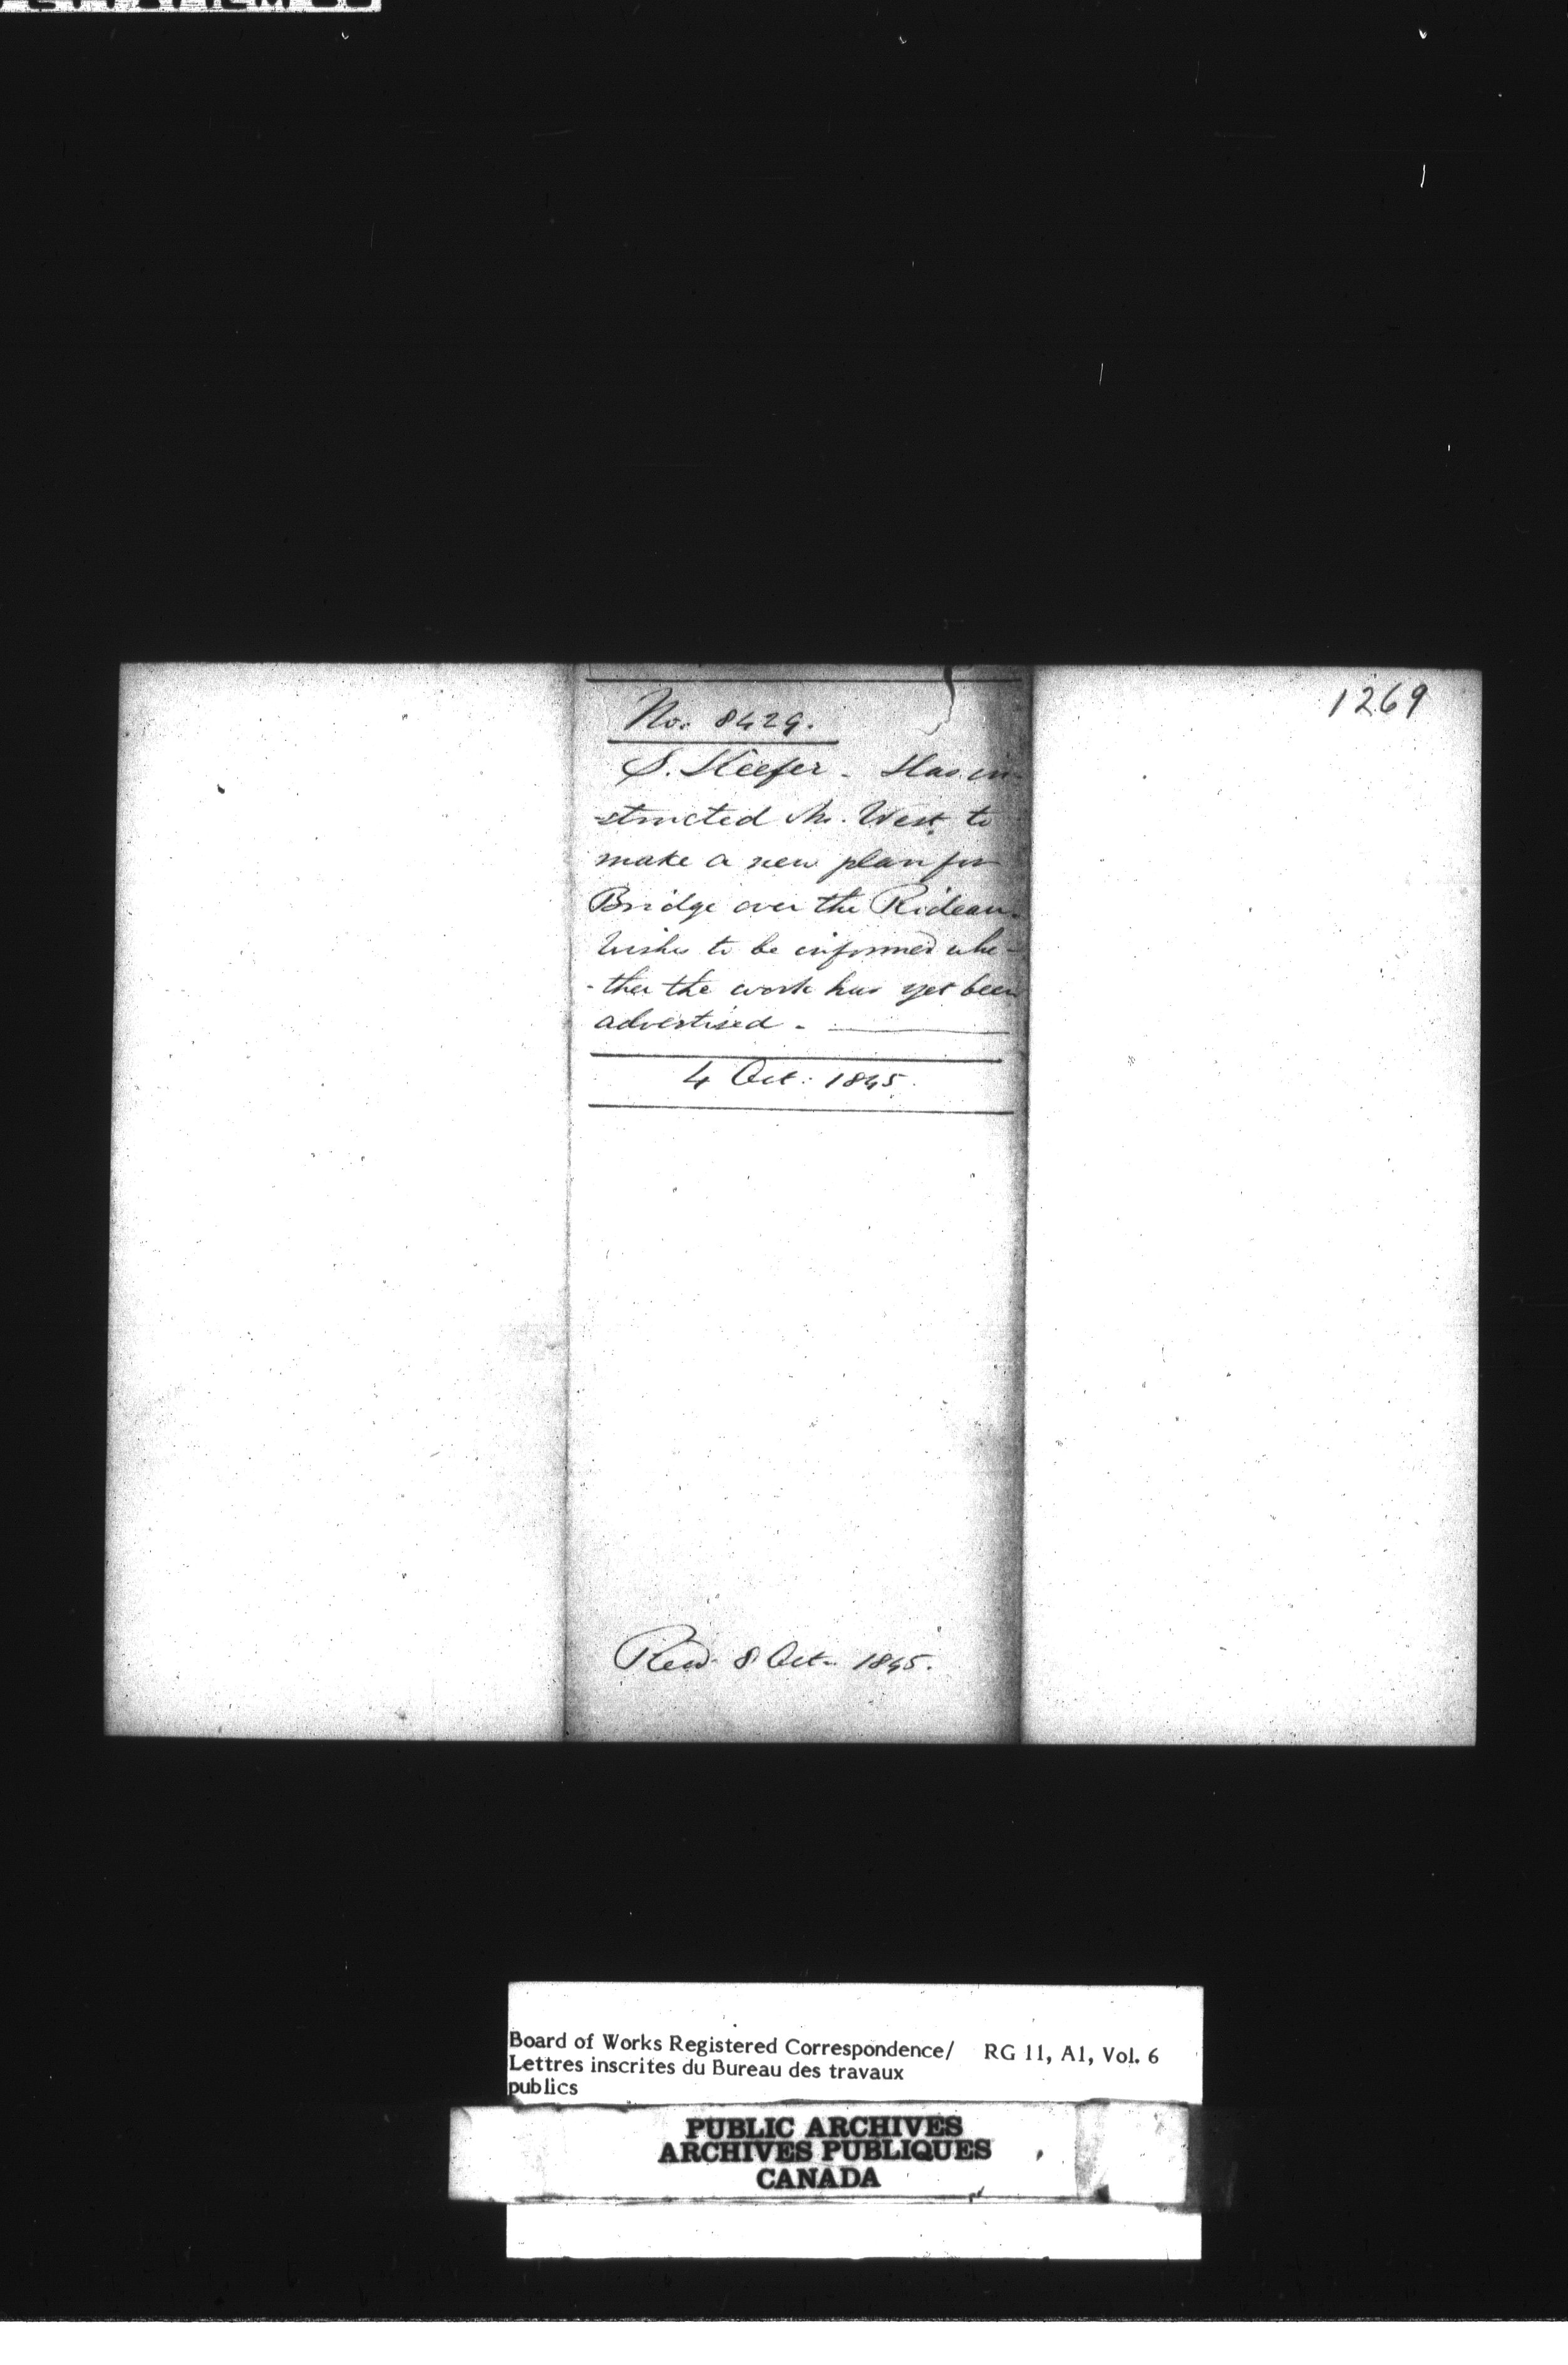 1269
No. 8429.
S. Keefer - Has in-
-structed Mr. West to
make a new plan for
Bridge over the Rideau.
Wishes to be informed whe-
-ther the work has yet been
advertised -
4 Oct: 1845.
Recd 8 Oct. 1845.
Board of Works Registered Correspondence/ RG 11, A1, Vol. 6
Lettres inscrites du Bureau des travaux
publics
PUBLIC ARCHIVES
ARCHIVES PUBLIQUES
CANADA